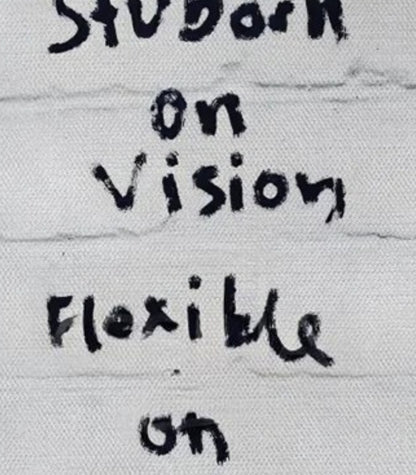 Stuborn
on
Vision
Flexible
on